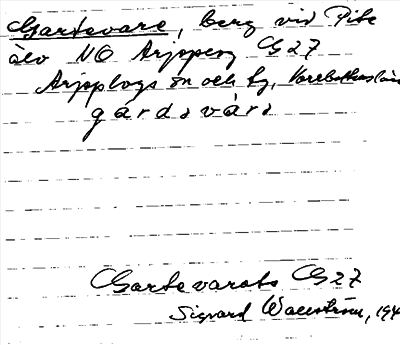 Gartevare, berg vid Pite
älv NO Arjeplog G27
Arjeplogs sn och tg, Västerbottens län
gárdavárı
Gartevarats G27
Sigvard Wallström, 194